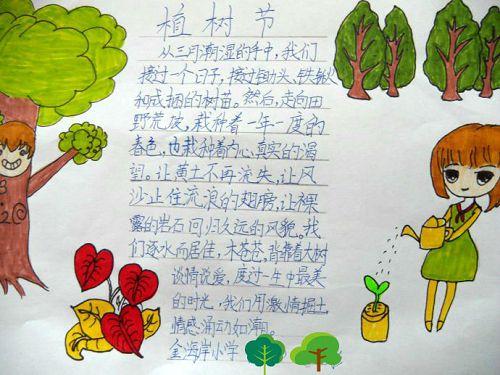 植树节
从三月潮湿的手中,我们
接过一个日子,接过锄头、铁锹
和成捆的树苗。然后,走向田
野荒坡,栽种着一年一度的
春色,也栽种着内心真实的渴
望。让黄土不再流失,让风
沙止住流浪的翅膀,让裸
露的岩石回归久远的风貌。我
们逐水而居住,木苍苍,背靠着大树
谈情说爱,度过一生中最美
的时光,我们用激情掘土,
情感涌动如潮。
金海岸小学